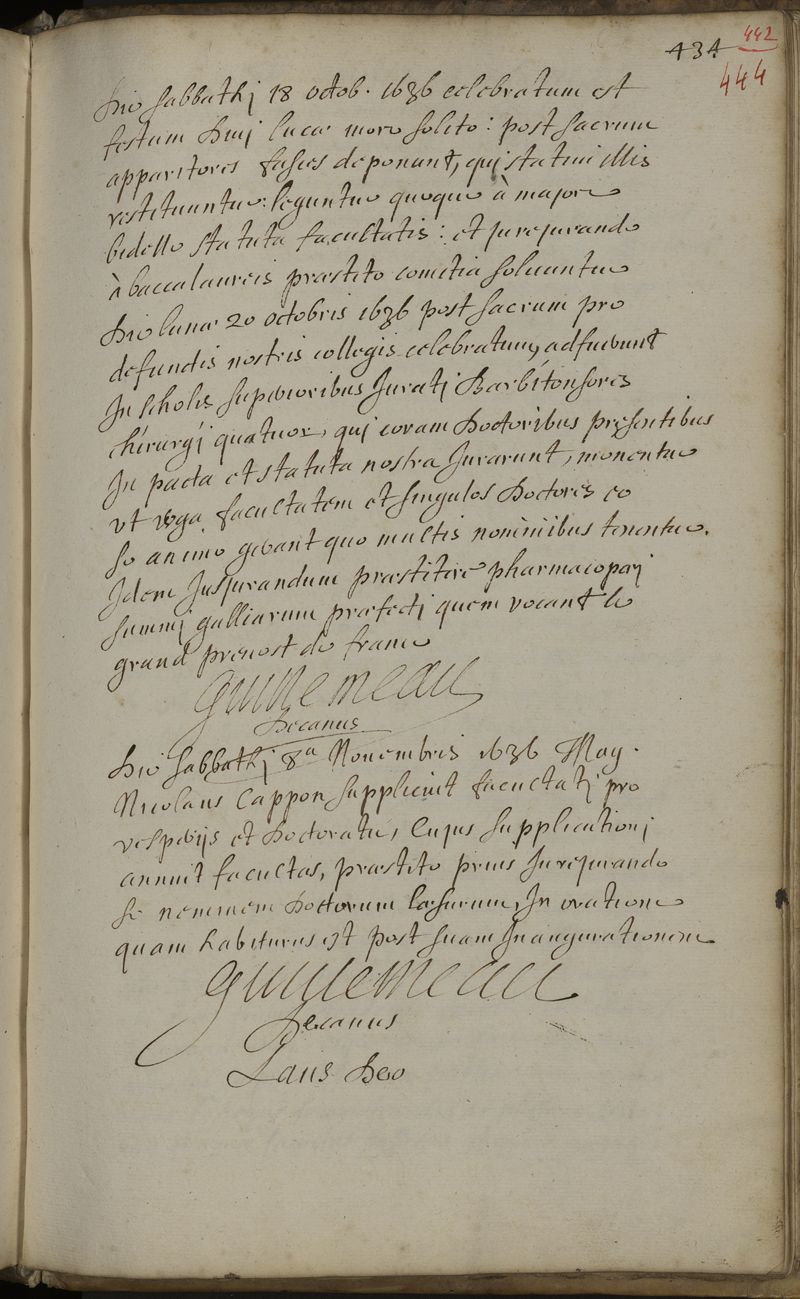 434
442
444
Die sabbathj 18 octob. 1636 celebratum est
festum Divj lucæ more solito: post sacrum
apparitores fasces deponunt, quj statim illis
restituuntur: leguntur quoque à majore
bidello statuta facultatis: et jurejurando
à baccalaureis præstito comitia soluuntur
Die lunæ 20 octobris 1636 post sacrum pro
defunctis nostris collegis celebratum, adfuerunt
In scholis superioribus Juratj Barbitonsores
chirurgj quatuor, quj coram Doctoribus præsentibus
In pacta et statuta nostra Jurarunt, monentur
vt erga facultatem et singulos Doctores eo
se animo gerant quo multis nominibus tenentur.
Idem Jusjurandum præstitere pharmacopæj
summj galliarum præfectj quem vocant le
grand preuost de france
Guillemeau
Decanus
Die sabbathj 8a Nouembris 1636 Mag.
Nicolaus Cappon supplicuit facultatj pro
vesperijs et Doctoratu, Cujus supplicationj
annuit facultas, præstito prius Jurejurando
se neminem Doctorum læsurum, In oratione
quam habiturus est post suam Inaugurationem
Guillemeau
Decanus
Laus Deo